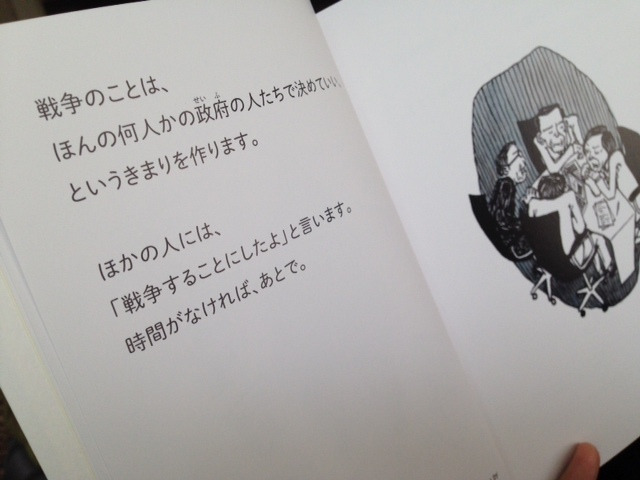 戦争のことは、
ほんの何人かの政府の人たちで決めていい、
せいふ
というきまりを作ります。
ほかの人には、
「戦争することにしたよ」と言います。
時間がなければ、あとで。